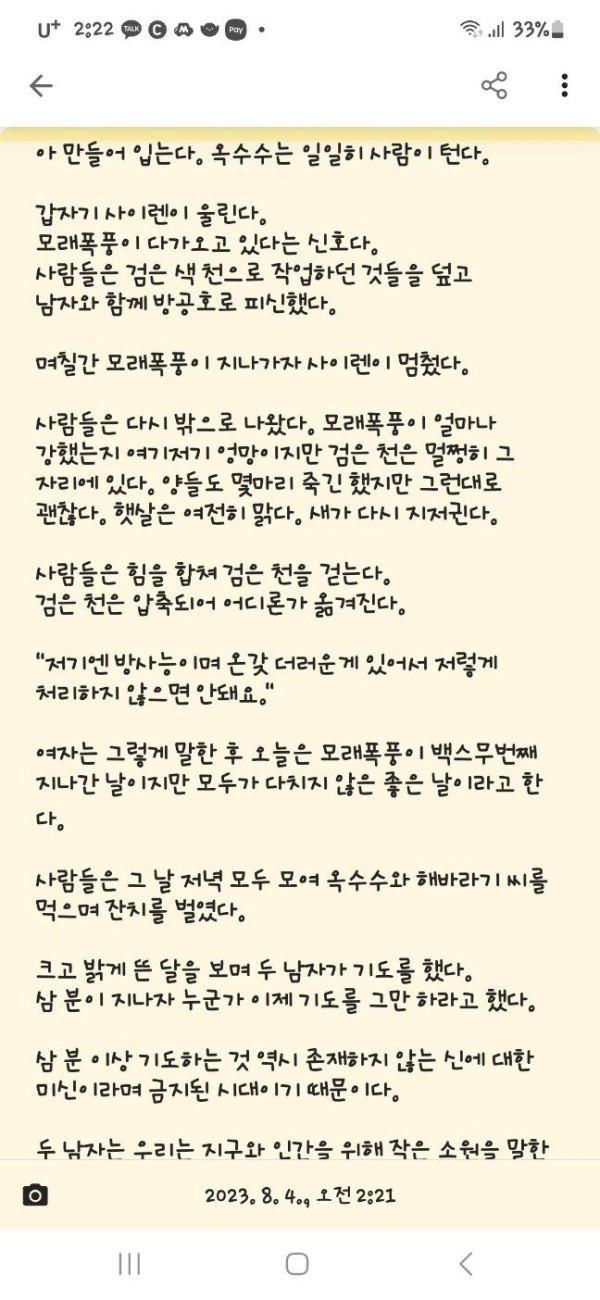 U+ 2:22 TALK C Pay 33%
아 만들어 입는다. 옥수수는 일일히 사람이 턴다.
갑자기 사이렌이 울린다.
모래폭풍이 다가오고 있다는 신호다.
사람들은 검은 색 천으로 작업하던 것들을 덮고
남자와 함께 방공호로 피신했다.
며칠간 모래폭풍이 지나가자 사이렌이 멈췄다.
사람들은 다시 밖으로 나왔다. 모래폭풍이 얼마나
강했는지 여기저기 엉망이지만 검은 천은 멀쩡히 그
자리에 있다. 양들도 몇마리 죽긴 했지만 그런대로
괜찮다. 햇살은 여전히 맑다. 새가 다시 지저귄다.
사람들은 힘을 합쳐 검은 천을 걷는다.
검은 천은 압축되어 어디론가 옮겨진다.
"저기엔 방사능이며 온갖 더러운게 있어서 저렇게
처리하지 않으면 안돼요."
여자는 그렇게 말한 후 오늘은 모래폭풍이 백스무번째
지나간 날이지만 모두가 다치지 않은 좋은 날이라고 한
다.
사람들은 그 날 저녁 모두 모여 옥수수와 해바라기 씨를
먹으며 잔치를 벌였다.
크고 밝게 뜬 달을 보며 두 남자가 기도를 했다.
삼 분이 지나자 누군가 이제 기도를 그만 하라고 했다.
삼 분 이상 기도하는 것 역시 존재하지 않는 신에 대한
미신이라며 금지된 시대이기 때문이다.
두 남자는 우리는 지구와 인간을 위해 작은 소원을 말한
2023. 8. 4., 오전 2:21